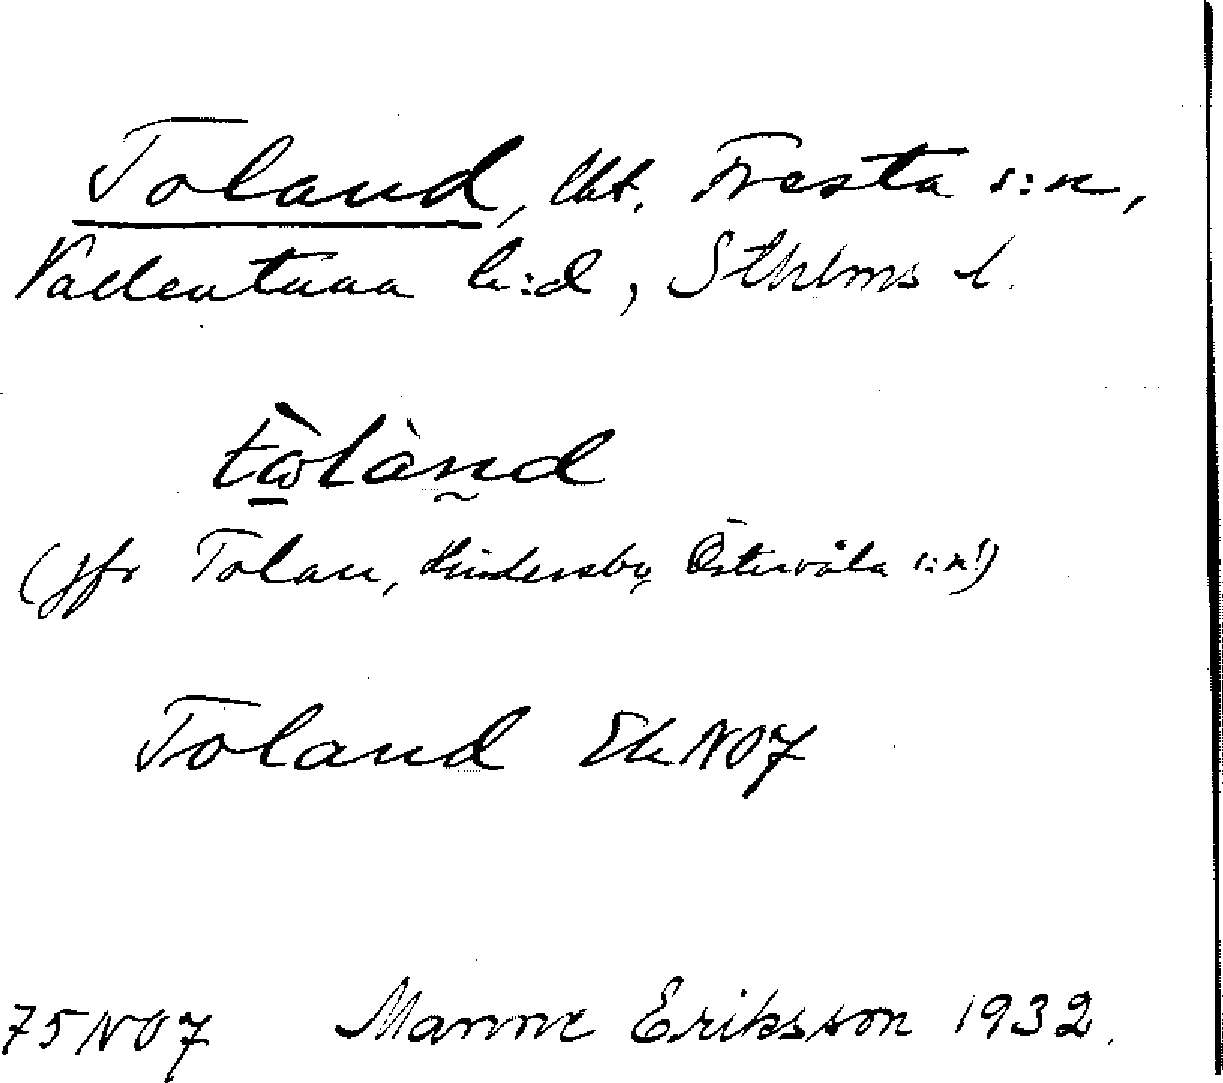 Toland, lht. Fresta s:n,
Vallentuna h:d, Sthlms l.
tωlànd
(jfr Tolan, Hindersby, Östervåla s:n!)
Toland Ek NO7
75NO7 Manne Eriksson 1932.